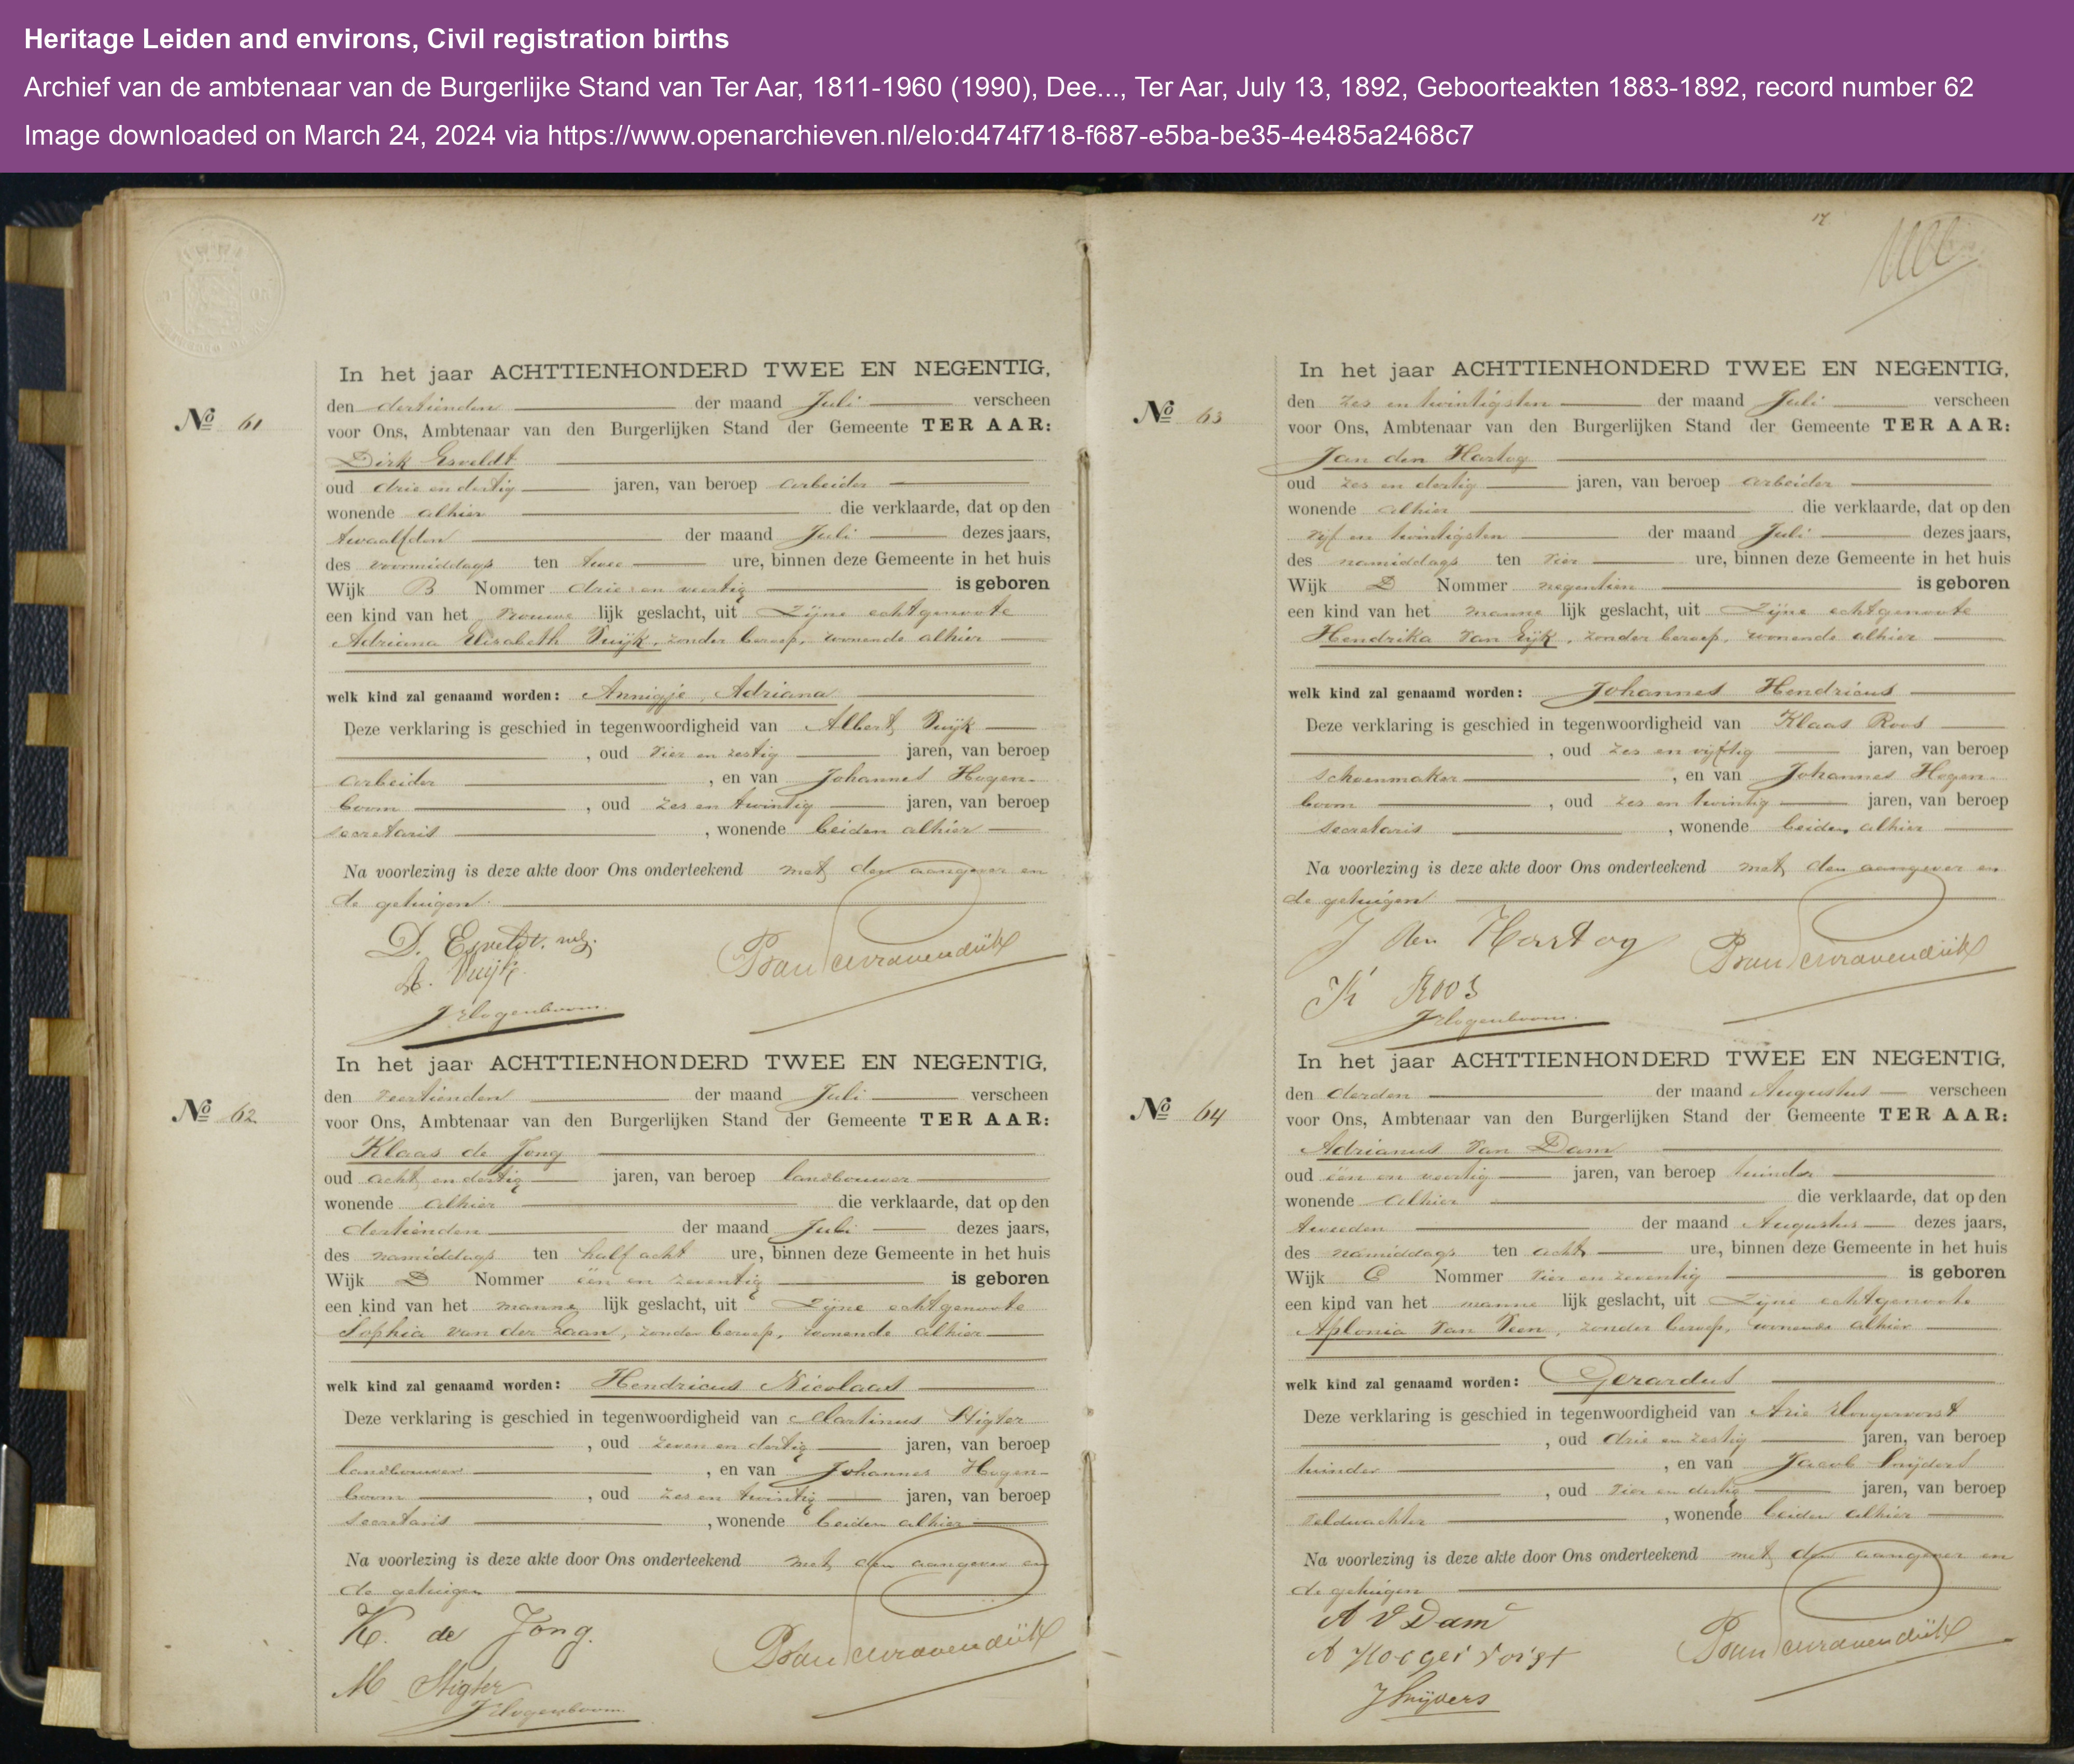 Heritage Leiden and environs, Civil registration births
Archief van de ambtenaar van de Burgerlijke Stand van Ter Aar, 1811-1960 (1990), Dee..., Ter Aar, July 13, 1892, Geboorteakten 1883-1892, record number 62
Image downloaded on March 24, 2024 via https://www.openarchieven.nl/elo:d474f718-f687-e5ba-be35-4e485a2468c7
No 61
In het jaar ACHTTIENHONDERD TWEE EN NEGENTIG,
den dertienden der maand Juli verscheen
voor Ons, Ambtenaar van den Burgerlijken Stand der Gemeente TER AAR:
Dirk Esveldt
oud drie en dertig jaren, van beroep arbeider
wonende alhier die verklaarde, dat op den
twaalfden der maand Juli dezes jaars,
des voormiddags ten twee ure, binnen deze Gemeente in het huis
Wijk B Nommer drie en veertig is geboren
een kind van het vrouwe lijk geslacht, uit zijne echtgenoote
Adriana Elisabeth Vuijk, zonder beroep, wonende alhier
welk kind zal genaamd worden: Annigje Adriana
Deze verklaring is geschied in tegenwoordigheid van Albert Vuijk
, oud vier en zestig jaren, van beroep
arbeider , en van Johannes Hogen-
boom , oud zes en twintig jaren, van beroep
secretaris , wonende beiden alhier
Na voorlezing is deze akte door Ons onderteekend met den aangever en
de getuigen.
D. Esveldt
A. Vuijk
J Hogenboom
No 62
In het jaar ACHTTIENHONDERD TWEE EN NEGENTIG,
den veertienden der maand Juli verscheen
voor Ons, Ambtenaar van den Burgerlijken Stand der Gemeente TER AAR:
Klaas de Jong
oud acht en dertig jaren, van beroep landbouwer
wonende alhier die verklaarde, dat op den
dertienden der maand Juli dezes jaars,
des namiddags ten half acht ure, binnen deze Gemeente in het huis
Wijk D Nommer één en zeventig is geboren
een kind van het manne lijk geslacht, uit zijne echtgenoote
Sophia van der Laan, zonder beroep, wonende alhier
welk kind zal genaamd worden: Hendricus Nicolaas
Deze verklaring is geschied in tegenwoordigheid van Martinus Stigter
, oud zeven en dertig jaren, van beroep
landbouwer , en van Johannes Hogen-
boom , oud zes en twintig jaren, van beroep
secretaris , wonende beiden alhier
Na voorlezing is deze akte door Ons onderteekend met den aangever en
de getuigen
K. de Jong.
M Stigter
J Hogenboom
17
No 63
In het jaar ACHTTIENHONDERD TWEE EN NEGENTIG,
den zes en twintigsten der maand Juli verscheen
voor Ons, Ambtenaar van den Burgerlijken Stand der Gemeente TER AAR:
Jan den Hartog
oud zes en dertig jaren, van beroep arbeider
wonende alhier die verklaarde, dat op den
vijf en twintigsten der maand Juli dezes jaars,
des namiddags ten vier ure, binnen deze Gemeente in het huis
Wijk D Nommer negentien is geboren
een kind van het manne lijk geslacht, uit zijne echtgenoote
Hendrika van Eijk, zonder beroep, wonende alhier
welk kind zal genaamd worden: Johannes Hendricus
Deze verklaring is geschied in tegenwoordigheid van Klaas Roos
, oud zes en vijftig jaren, van beroep
schoenmaker , en van Johannes Hogen-
boom , oud zes en twintig jaren, van beroep
secretaris , wonende beiden alhier
Na voorlezing is deze akte door Ons onderteekend met den aangever en
de getuigen
J den Hartog
K Roos
J Hogenboom.
No 64
In het jaar ACHTTIENHONDERD TWEE EN NEGENTIG,
den derden der maand Augustus verscheen
voor Ons, Ambtenaar van den Burgerlijken Stand der Gemeente TER AAR:
Adrianus van Dam
oud één en veertig jaren, van beroep tuinder
wonende alhier die verklaarde, dat op den
tweeden der maand Augustus dezes jaars,
des namiddags ten acht ure, binnen deze Gemeente in het huis
Wijk C Nommer vier en zeventig is geboren
een kind van het manne lijk geslacht, uit zijne echtgenoote
Aplonia van Veen, zonder beroep, wonende alhier
welk kind zal genaamd worden: Gerardus
Deze verklaring is geschied in tegenwoordigheid van Arie Hoogervorst
, oud drie en zestig jaren, van beroep
tuinder , en van Jacob Snijders
, oud vier en dertig jaren, van beroep
veldwachter , wonende beiden alhier
Na voorlezing is deze akte door Ons onderteekend met den aangever en
de getuigen
A v Dam
A Hoogervorst
J Snijders